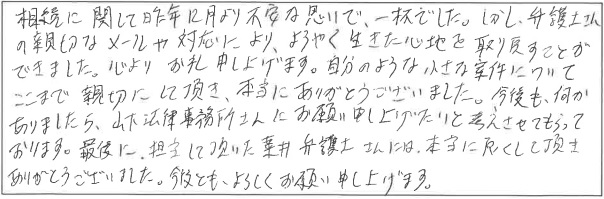 相続に関して昨年12月より不安な思いで、一杯でした。しかし、弁護士さん
の親切なメールや対応により、ようやく生きた心地を取り戻すことが
できました。心よりお礼申し上げます。自分のような小さな案件について
ここまで親切にして頂き、本当にありがとうございました。今後も、何か
ありましたら、山下法律事務所さんにお願い申し上げたいと考えさせてもらって
おります。最後に、担当して頂いた葉井弁護士さんには、本当に尽くして頂き
ありがとうございました。今後とも、よろしくお願い申し上げます。